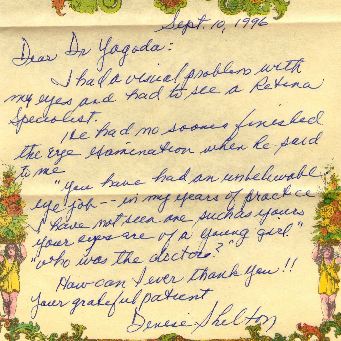 Sept. 10, 1996
Dear Dr Yagoda:
I had a visual problem with
my eyes and had to see a Retina
Specialist.
He had no sooner finished
the eye examination when he said
to me
"you have had an unbelievable
eye job -- in my years of practice
I have not seen one such as yours
your eyes are of a young girl."
"who was the doctors?"
How can I ever thank you!!
Your grateful patient
Denise Shelton